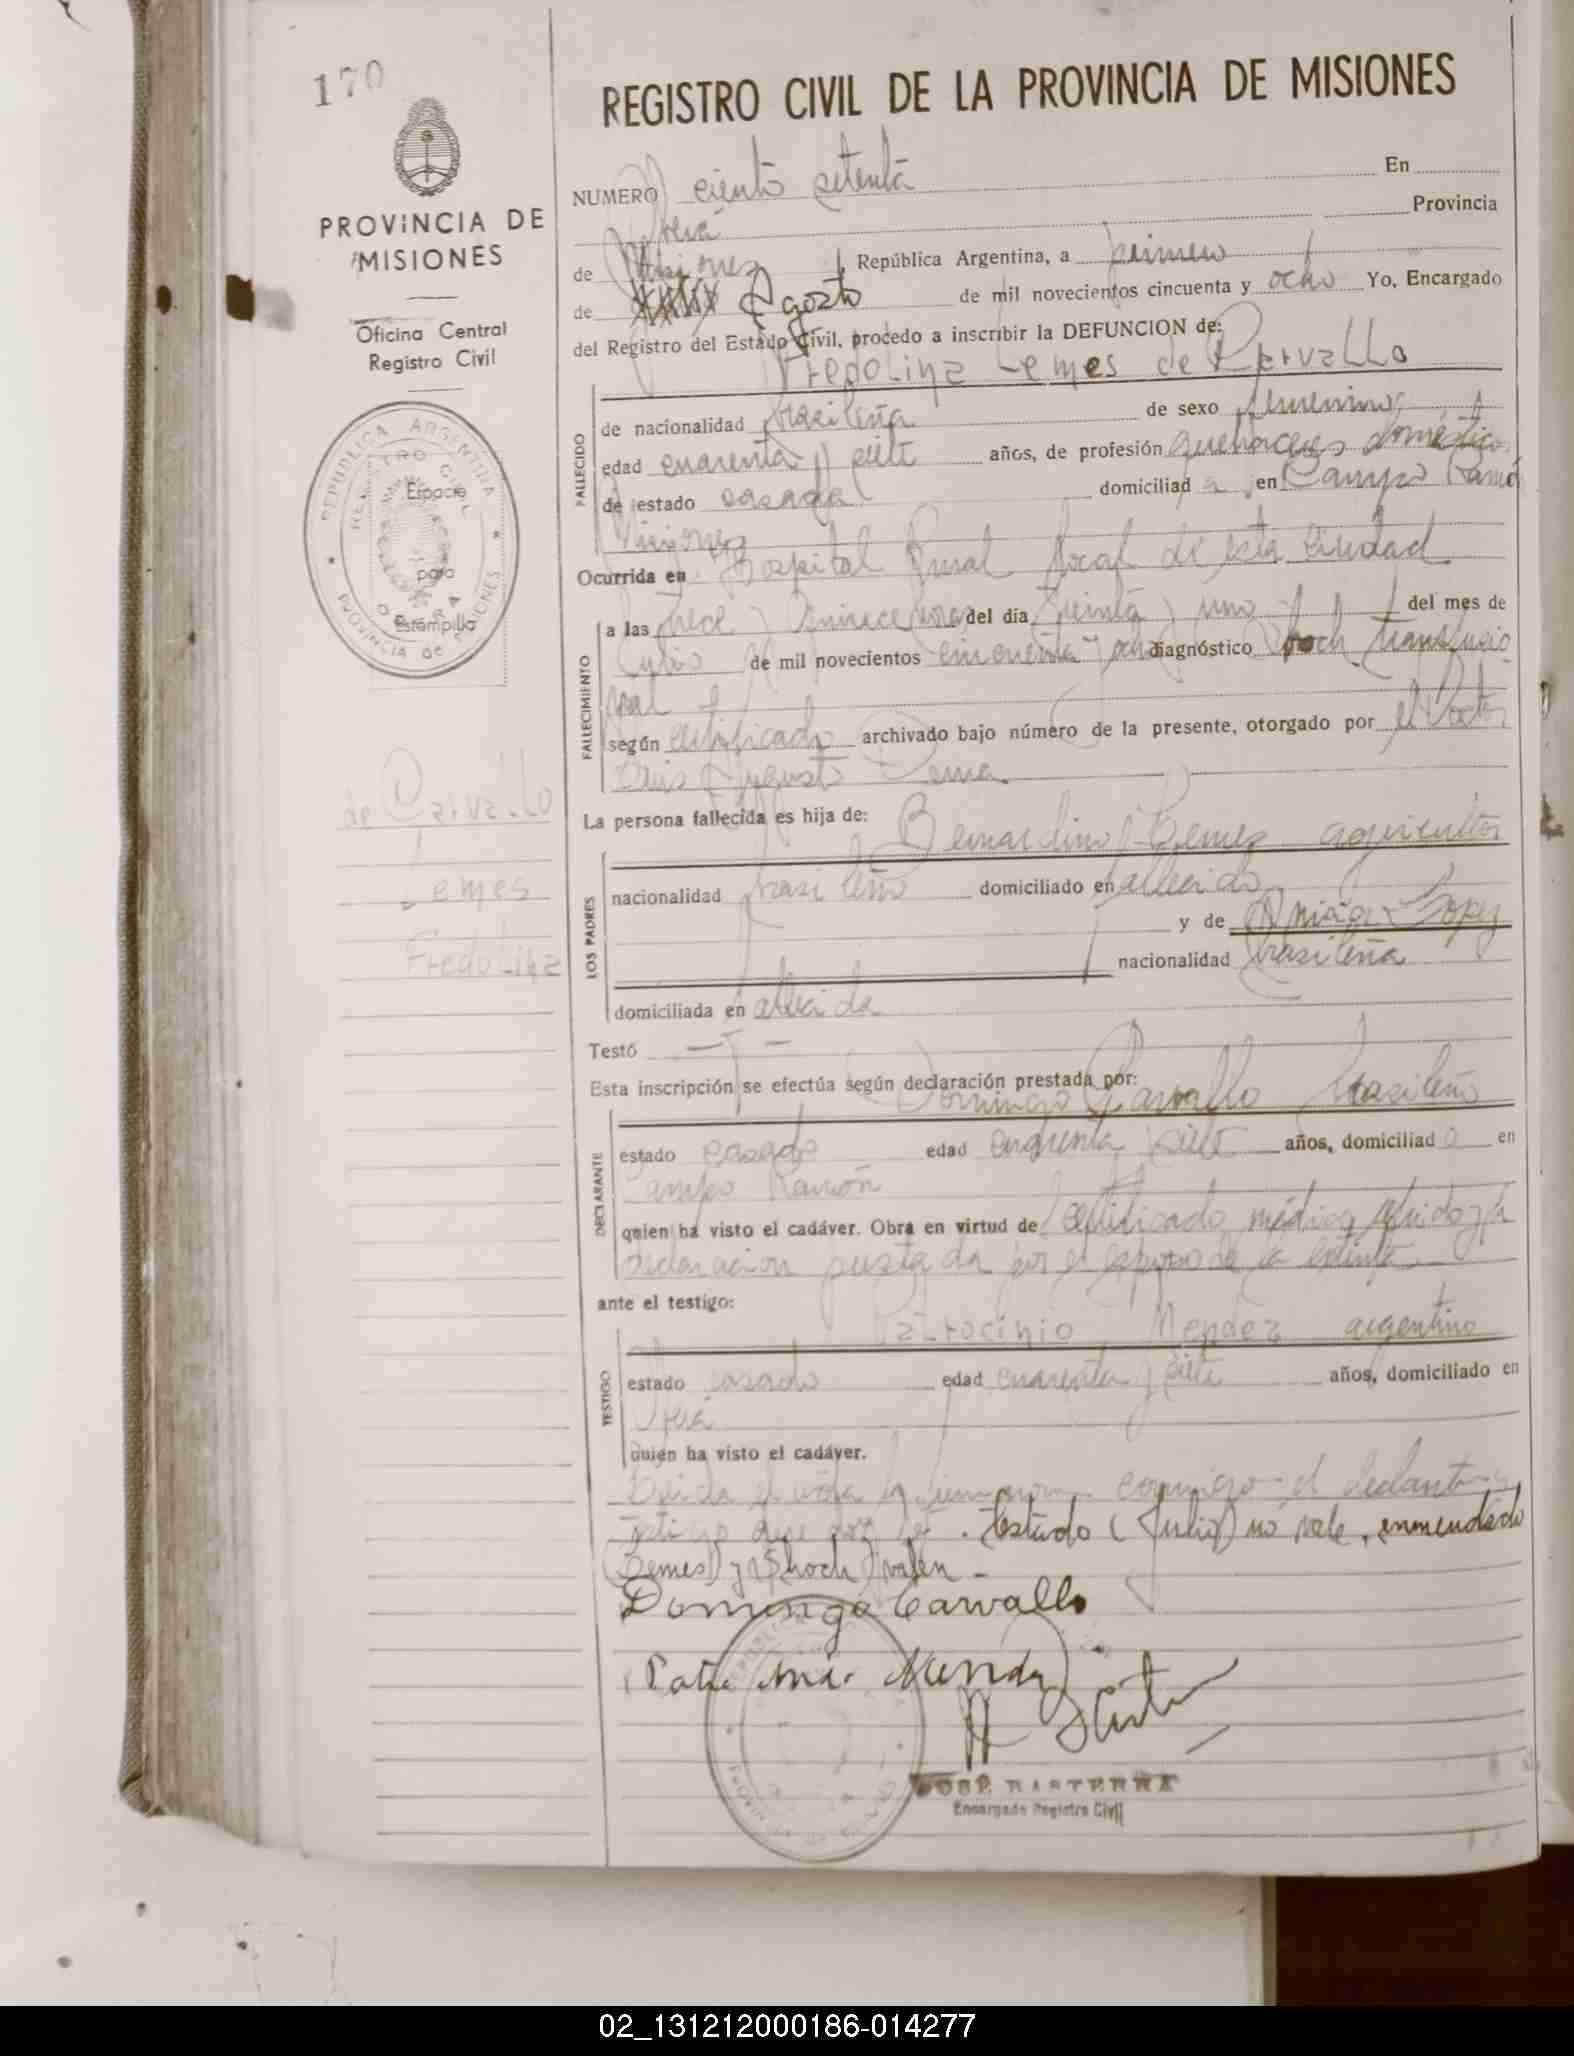 170
PROVINCIA DE
MISIONES
Oficina Central
Registro Civil
REPUBLICA ARGENTINA
REGISTRO CIVIL
Espacio
para
Estampilla
OBERA
PROVINCIA DE MISIONES
de Carvallo
Lemes
Fredolina
REGISTRO CIVIL DE LA PROVINCIA DE MISIONES
NUMERO ciento setenta En
Oberá Provincia
de Misiones, República Argentina, a primero
de Agosto de mil novecientos cincuenta y ocho Yo, Encargado
del Registro del Estado Civil, procedo a inscribir la DEFUNCION de:
Fredolina Lemes de Carvallo
FALLECIDO
de nacionalidad brasileña de sexo femenino,
edad cuarenta y siete años, de profesión quehaceres domésticos
de estado casada domiciliada en Campo Ramón
Misiones
Ocurrida en Hospital Rural local de esta ciudad
FALLECIMIENTO
a las trece y quince horas del día treinta y uno del mes de
Julio de mil novecientos cincuenta y ocho diagnóstico Shoch transfusio
nal
según certificado archivado bajo número de la presente, otorgado por el Doctor
Luis Augusto
La persona fallecida es hija de:
Bernardino Lemes agricultor
LOS PADRES
nacionalidad brasileño domiciliado en fallecido
y de López
nacionalidad brasileña
domiciliada en fallecida
Testó — —
Esta inscripción se efectúa según declaración prestada por:
Domingo Carvallo brasileño
DECLARANTE
estado casado edad cuarenta y siete años, domiciliado en
Campo Ramón
quien ha visto el cadáver. Obra en virtud de certificado médico y la
declaración prestada por el esposo de la extinta.
ante el testigo:
Patrocinio Mendez argentino
TESTIGO
estado casado edad cuarenta y siete años, domiciliado en
Oberá
quien ha visto el cadáver.
Leida el acta la firmaron conmigo el declarante y
testigo que doy fé. Testado (Julio) no vale, enmendado
(Lemes) y (Shoch) valen -
Domingo Carvallo
JOSE BASTERRA
Encargado Registro Civil
02_131212000186-014277